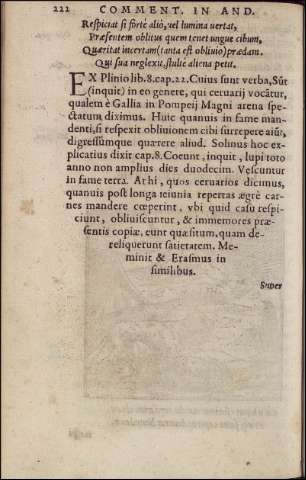 222 COMMENT. IN AND.
Respiciat si forte aliò, vel lumina vertat,
Præsentem oblitus quem tenet ungue cibum,
Quæritat incertam (tanta est oblivio) prædam.
Qui sua neglexit, stultè aliena petit.
EX Plinio lib. 8. cap. 22. Cuius sunt verba, Sũt
(inquit) in eo genere, qui ceruarij vocãtur,
qualem è Gallia in Pompeij Magni arena spe-
ctatum diximus. Huic quanuis in fame man-
denti, si respexit obliuionem cibi surrepere aiũt,
digressúmque quærere aliud. Solinus hoc ex-
plicatius dixit cap. 8. Coeunt, inquit, lupi toto
anno non amplius dies duodecim. Vescuntur
in fame terra. At hi, quos ceruarios dicimus,
quanuis post longa ieiunia repertas ægrè car-
nes mandere cœperint, vbi quid casu respi-
ciunt, obliuiscuntur, & immemores præ-
sentis copiæ, eunt quæsitum, quam de-
reliquerunt satietatem. Me-
minit & Erasmus in
similibus.
Super